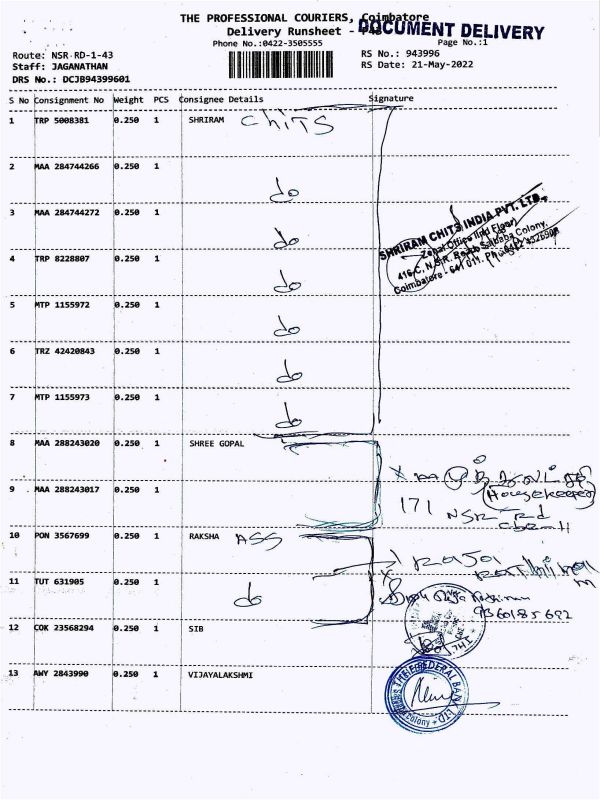 THE PROFESSIONAL COURIERS, Coimbatore
DOCUMENT DELIVERY
Delivery Runsheet -
Phone No.:0422-3505555
Page No.:1
Route: NSR-RD-1-43
RS No.: 943996
Staff: JAGANATHAN
RS Date: 21-May-2022
DRS No.: DCJB94399601
S No Consignment No Weight PCS Consignee Details Signature
1 TRP 5008381 0.250 1 SHRIRAM ChiTS
2 MAA 284744266 0.250 1 do
3 MAA 284744272 0.250 1 do
SHRIRAM CHITS INDIA PVT. LTD.,
Zonal Office (IInd Floor)
416-C, N.S.R. Road, Saibaba Colony,
Coimbatore - 641 011.
4 TRP 8228807 0.250 1 do
5 MTP 1155972 0.250 1 do
6 TRZ 42420843 0.250 1 do
7 MTP 1155973 0.250 1 do
8 MAA 288243020 0.250 1 SHREE GOPAL
(Housekeeper)
9 MAA 288243017 0.250 1
171 NSR Rd
10 PON 3567699 0.250 1 RAKSHA ASS
Raja
Rathinam
11 TUT 631905 0.250 1 do
9360185692
12 COK 23568294 0.250 1 SIB
13 AWY 2843990 0.250 1 VIJAYALAKSHMI
THE FEDERAL BANK LTD
Colony